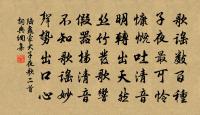 歌謠數百種
子夜最可憐
慷慨吐清音
明轉出天然
絲竹發歌響
假器揚清音
不知歌謠妙
聲勢出口心
陸龜蒙大子夜歌二首